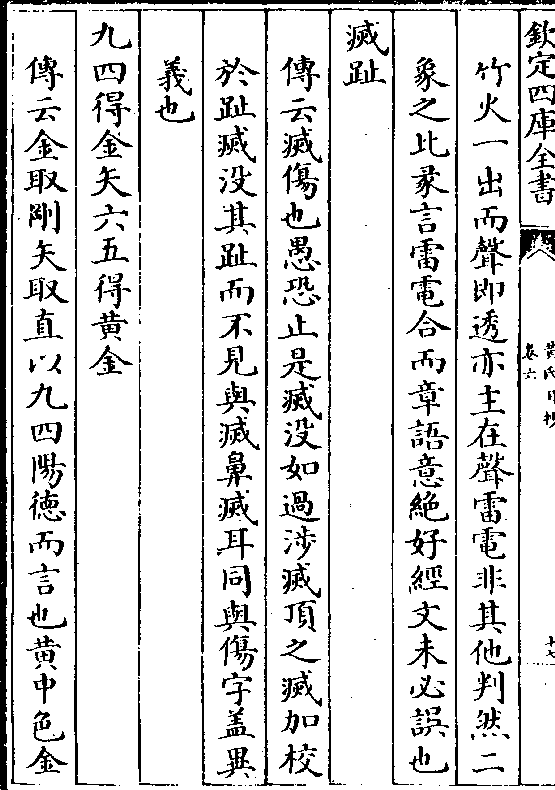 欽定四庫全書
黃氏日抄
卷六
十七
竹火一出而聲即透亦主在聲雷電非其他判然二
象之比彖言雷電合而章語意絶好經文未必誤也
滅趾
傳云滅傷也愚恐止是滅没如過涉滅頂之滅加校
於趾滅没其趾而不見與滅鼻滅耳同與傷字盖異
義也
九四得金矢六五得黄金
傳云金取剛矢取直以九四陽徳而言也黄中色金